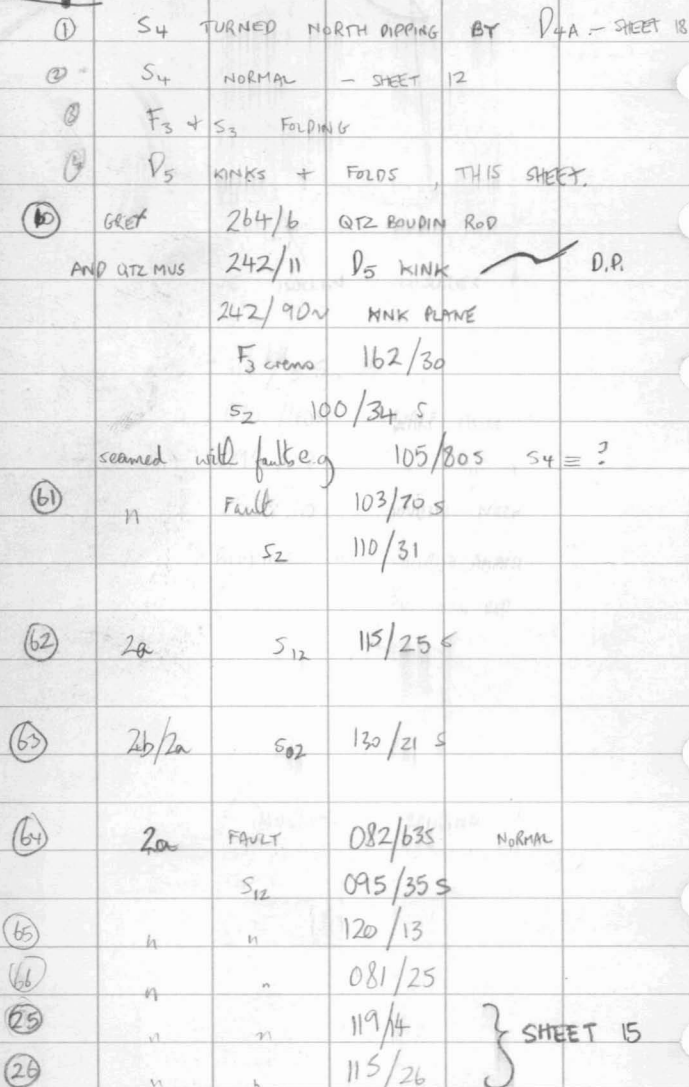 ① S4 TURNED NORTH DIPPING BY D4A - SHEET 18
② S4 NORMAL - SHEET 12
③ F3 + S3 FOLDING
④ D5 KINKS + FOLDS, THIS SHEET.
60 GREY 264/6 QTZ BOUDIN ROD
AND QTZ MUS 242/11 D5 KINK D.P.
242/90~ KINK PLANE
F3 crens 162/30
S2 100/34 S
seamed with faults e.g 105/80S S4 ≡ ?
61 " Fault 103/70 S
S2 110/31
62 2a S12 115/25 S
63 2b/2a S02 130/21 S
64 2a FAULT 082/63S NORMAL
S12 095/35 S
65 " " 120/13
66 " " 081/25
25 " " 119/14 } SHEET 15
26 " " 115/26